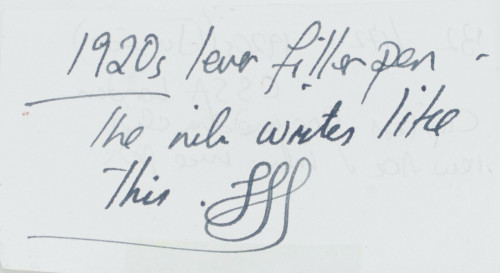 1920s lever filler pen -
The nib writes like
this.